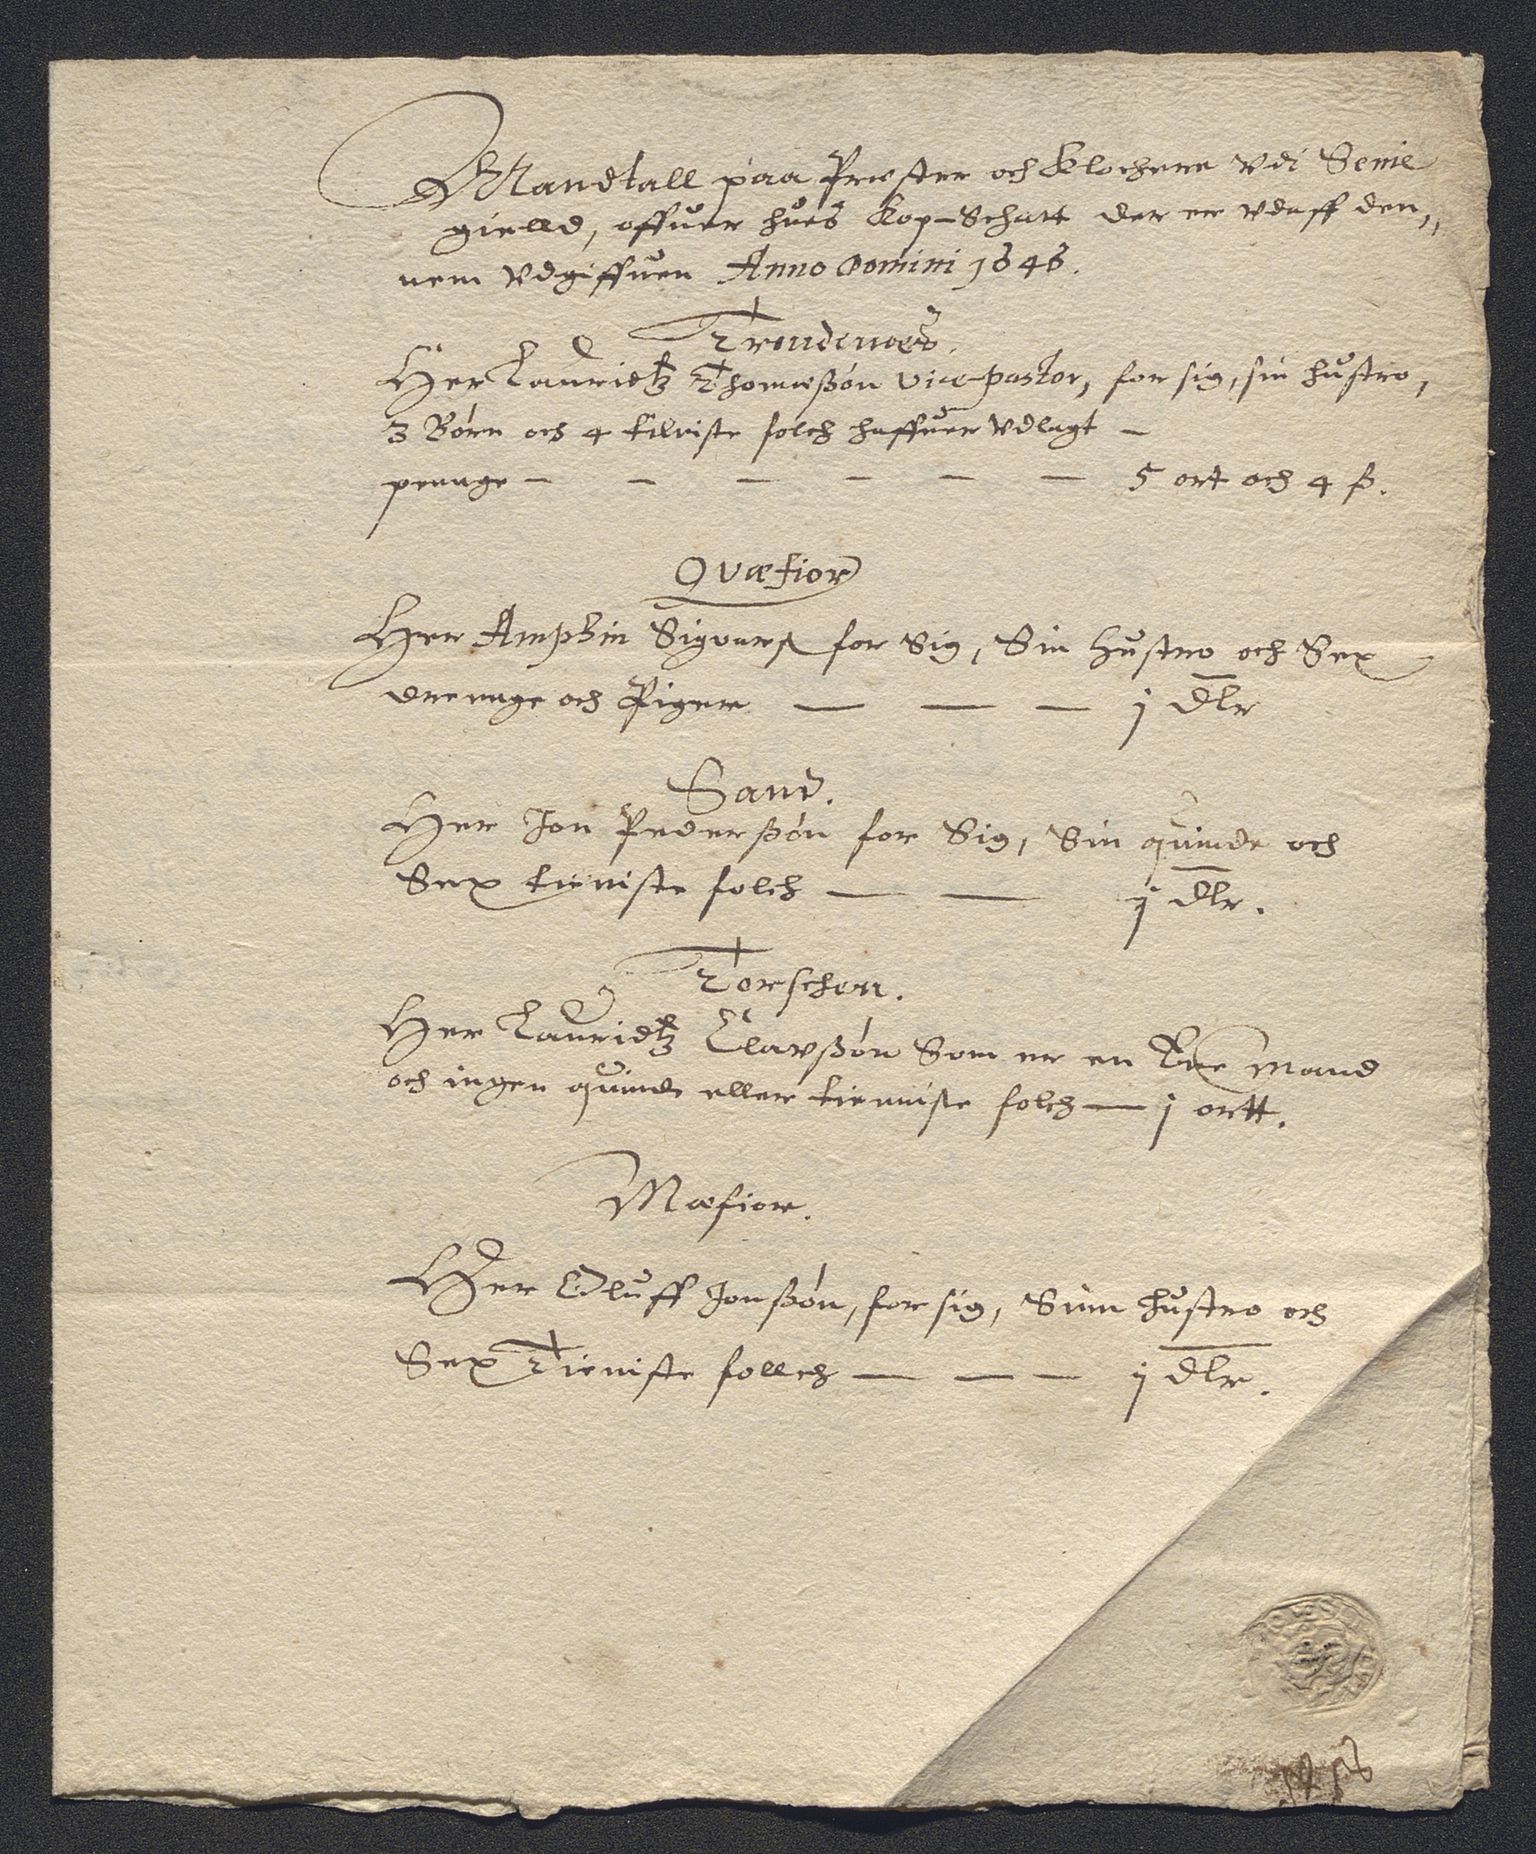 Mandtall paa Præster och Klochere Vdi Senie
gielld, offuer hues Kop-Schatt der er Vdaff den,,
nem Vdgiffuen Anno Domini 1646.
Trondenæs.
Her Lauridtz Thomæßøn Vice-pastor, for sig, sin hustro,
3 Børn och 4 tieniste folch haffuer Vdlagt —
penge — — — — — — 5 ort och 4 ß.
Qvæfior
Her Ampbin Sigvarß for Sig, Sin hustro och Sex
drennge och Piger — — — j dlr
Sand.
Her Jon Pederßøn for Sig, Sin quinde och
Sex tieniste folch — — j dlr.
Torschen.
Her Lauridtz Clavßøn Som er en Ene Mand
och ingen quinde eller tienniste folch — j ortt.
Mæfior.
Her Oluff Jonßøn, for sig, Sinn hustro och
Sex Tieniste follch — — — j dlr.